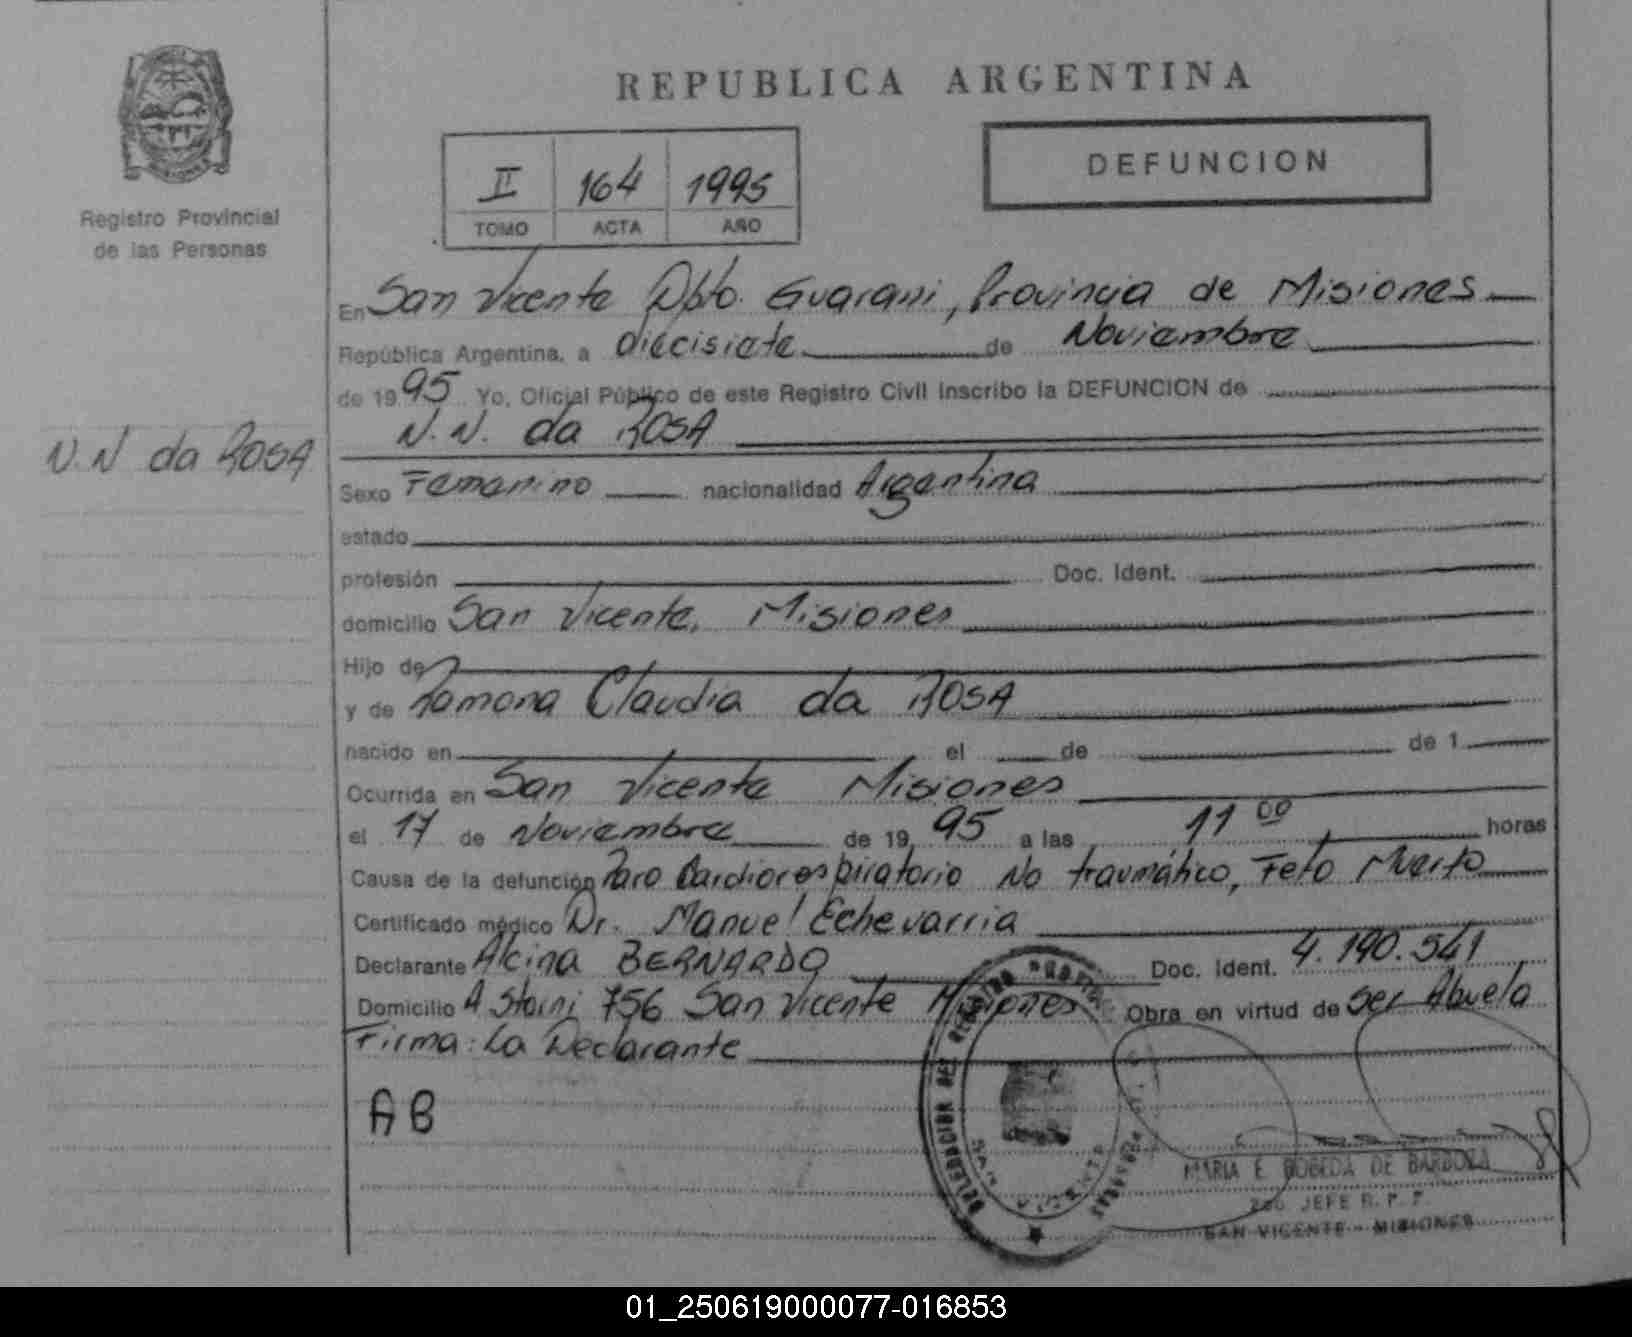 REPUBLICA ARGENTINA
Registro Provincial
de las Personas
II 164 1995
TOMO ACTA AÑO
DEFUNCION
En San Vicente Dpto. Guarani, Provincia de Misiones
República Argentina, a diecisiete de Noviembre
de 1995 Yo, Oficial Público de este Registro Civil Inscribo la DEFUNCION de
N.N. da ROSA
N.N da ROSA
Sexo Femenino nacionalidad Argentina
estado
profesión Doc. Ident.
domicilio San Vicente, Misiones
Hijo de
y de Ramona Claudia da ROSA
nacido en el de de 1
Ocurrida en San Vicente Misiones
el 17 de Noviembre de 1995 a las 11 00 horas
Causa de la defunción Paro Cardiorespiratorio No traumático, Feto Muerto
Certificado médico Dr. Manuel Echevarria
Declarante Alcina BERNARDO Doc. Ident. 4.190.541
Domicilio A Storni 756 San Vicente Misiones Obra en virtud de ser Abuela
Firma: La Declarante
AB
DELEGACION DEL REGISTRO
SAN VICENTE
MARIA E. BOBEDA DE BARBOZA
JEFE R. P. P.
SAN VICENTE - MISIONES
01_250619000077-016853